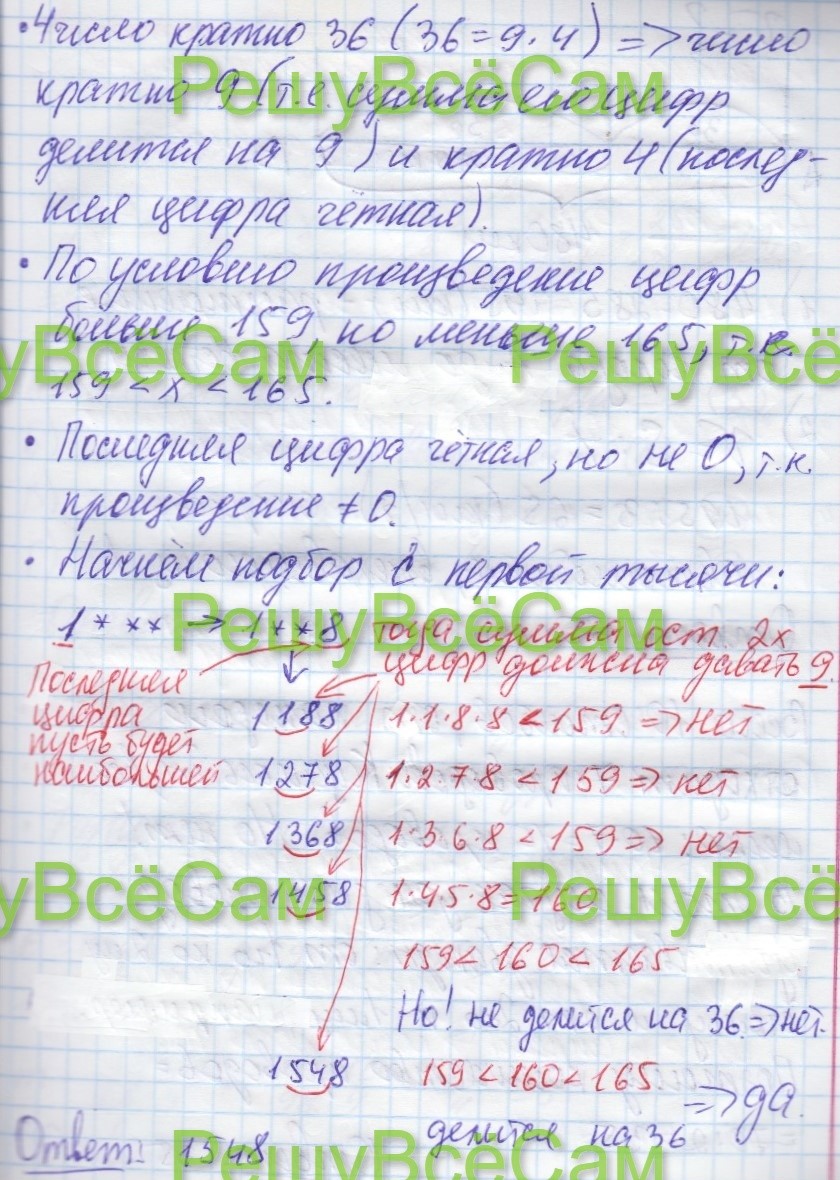 • Число кратно 36 (36 = 9·4) => число
кратно 9 (т.е. сумма его цифр
делится на 9) и кратно 4 (послед-
няя цифра чётная).
• По условию произведение цифр
больше 159, но меньше 165, т.к.
159 < x < 165.
• Последняя цифра чётная, но не 0, т.к.
произведение ≠ 0.
• Начнём подбор с первой тысячи:
1*** → 1**8 тогда сумма ост. 2х
цифр должна давать 9.
Последняя
цифра
пусть будет
наибольшей
1188 1·1·8·8 < 159 => нет
1278 1·2·7·8 < 159 => нет
1368 1·3·6·8 < 159 => нет
1458 1·4·5·8 = 160
159 < 160 < 165
Но! не делится на 36 => нет.
1548 159 < 160 < 165
делится на 36 => да.
Ответ: 1548
РешуВсёСам
уВсёСам РешуВсё
РешуВсёСам
уВсёСам РешуВсё
РешуВсёСам